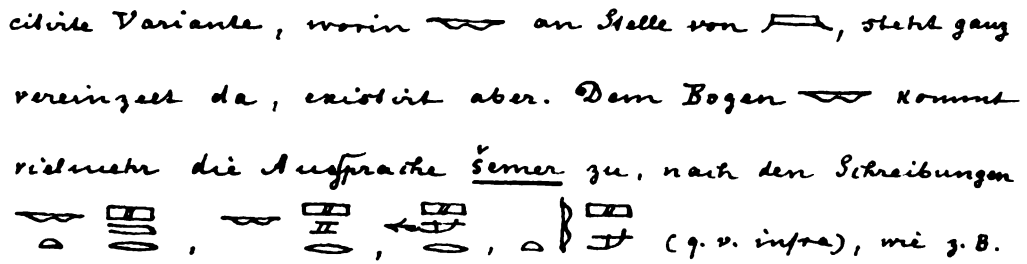 citirte Variante, worin an Stelle von , steht ganz
vereinzelt da, existirt aber. Dem Bogen kommt
vielmehr die Aussprache šemer zu, nach den Schreibungen
, , , (q. v. infra), wie z. B.